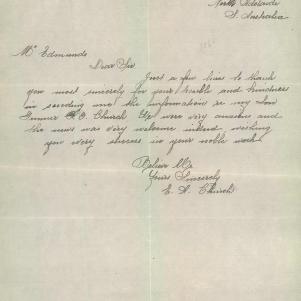 North Adelaide
S. Australia
Mr Edmunds
Dear Sir
Just a few lines to thank
you most sincerely for your trouble and kindness
in sending me the information re my Son
Gunner Church We were very anxious and
the news was very welcome indeed wishing
you every success in your noble work.
Believe Me
Yours Sincerely
E. A. Church